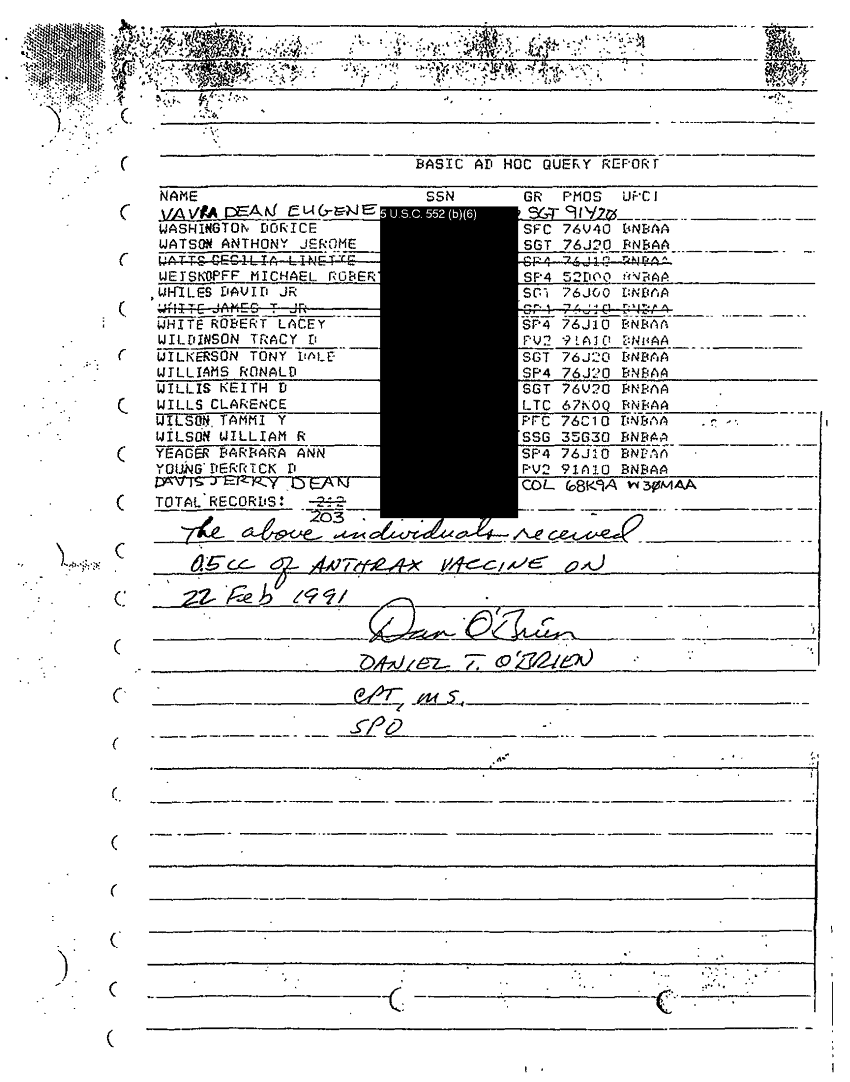 BASIC AD HOC QUERY REPORT
NAME SSN GR PMOS UPCI
VAVRA DEAN EUGENE 5 U.S.C. 552 (b)(6) SGT 91Y20
WASHINGTON DORICE SFC 76V40 BNBAA
WATSON ANTHONY JEROME SGT 76J20 BNBAA
WATTS CECILIA LINETTE SP4 76J10 BNBAA
WEISKOPFF MICHAEL ROBERT SP4 52D00 BNBAA
WHILES DAVID JR SGT 76J00 BNBAA
WHITE JAMES T JR SP4 76J10 BNBAA
WHITE ROBERT LACEY SP4 76J10 BNBAA
WILDINSON TRACY D PV2 91A10 BNBAA
WILKERSON TONY DALE SGT 76J20 BNBAA
WILLIAMS RONALD SP4 76J20 BNBAA
WILLIS KEITH D SGT 76V20 BNBAA
WILLS CLARENCE LTC 67K00 BNBAA
WILSON TAMMI Y PFC 76C10 BNBAA
WILSON WILLIAM R SSG 35G30 BNBAA
YEAGER BARBARA ANN SP4 76J10 BNBAA
YOUNG DERRICK D PV2 91A10 BNBAA
DAVIS JERRY DEAN COL 68K9A W30MAA
TOTAL RECORDS: 212
203
The above individuals received
0.5 cc of ANTHRAX VACCINE ON
22 Feb 1991
Dan O'Brien
DANIEL T. O'BRIEN
CPT, MS.
SPO